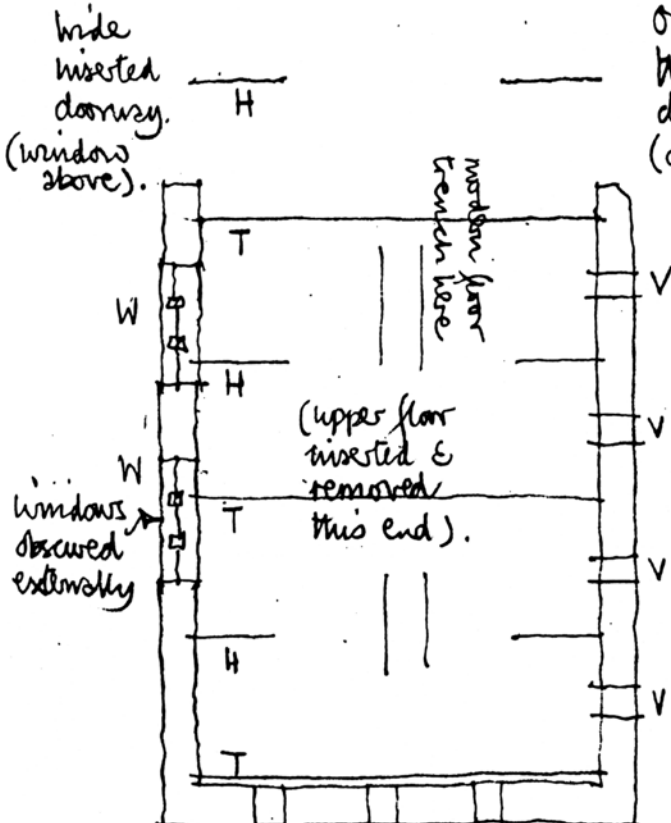 wide
inserted
doorway.
(window
above).
H
modern floor
trench here
T
V
W
H
(upper floor
inserted &
removed
this end).
V
W
T
windows
obscured
externally
V
H
V
T